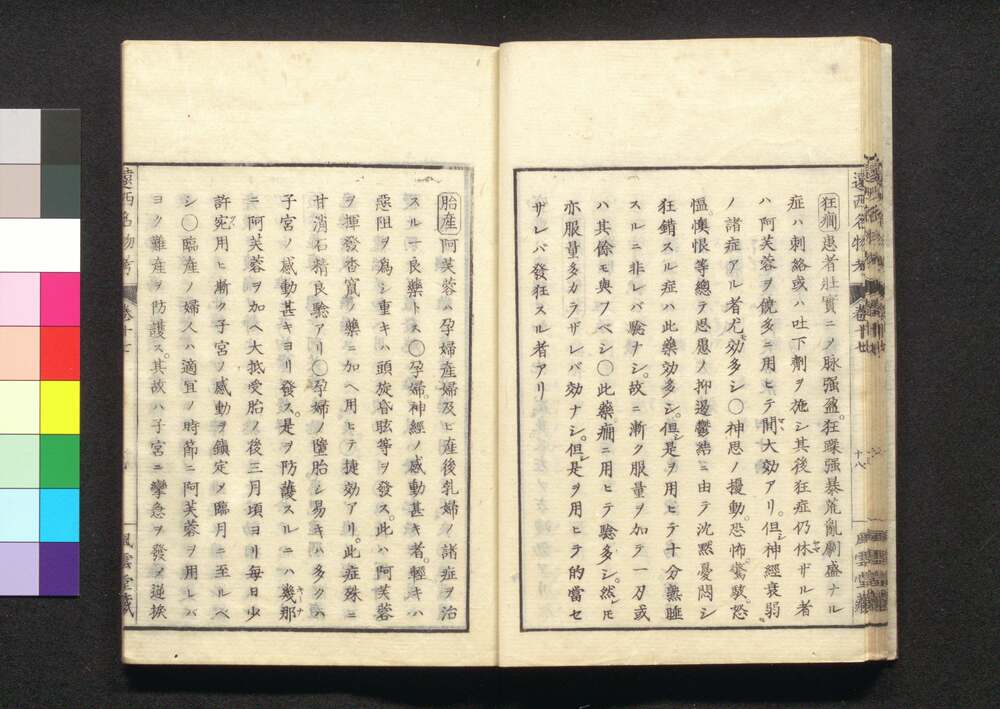 狂癇患者壯實ニメ脉强盈。狂躁强暴荒亂劇盛ナル
症ハ刺絡或ハ吐下劑ヲ施シ其後狂症仍休ザル者
ハ阿芙蓉ヲ饒多ニ用ヒテ間大効アリ。但神經衰弱
ノ諸症アル者尤効多シ〇神思ノ擾動。恐怖。驚駭。怒
慍。懊恨等總テ思慮ノ抑遏鬱結ニ由テ沈黙憂悶シ
狂錯スル症ハ此藥効多シ。但是ヲ用ヒテ十分熟睡
スルニ非レバ驗ナシ。故ニ漸ク服量ヲ加テ一刃或
ハ其餘モ與フベシ〇此藥癇ニ用ヒテ驗多シ。然𪜈
亦服量多カラザレバ効ナシ。但是ヲ用ヒテ的當セ
ザレバ發狂スル者アリ
遠西名物考 卷十七
十八
風雲堂藏
胎産阿芙蓉ハ孕婦産婦及ヒ産後乳婦ノ諸症ヲ治
スル寸良藥トス〇孕婦。神經ノ感動甚キ者。輕キハ
惡阻ヲ爲シ重キハ頭旋昏眩等ヲ發ス。此ハ阿芙蓉
ヲ揮發杳竄ノ藥ニ加ヘ用ヒテ捷効アリ。此症殊ニ
甘消石精良驗アリ〇孕婦ノ墮胎シ易キハ多クハ
子宮ノ感動甚キヨリ發ス。是ヲ防護スルニハ幾那
ニ阿芙蓉ヲ加ヘ大抵受胎ノ後三月頃ヨリ每日少
許宛用ヒ漸ク子宮ノ感動ヲ鎭定メ臨月ニ至ルベ
シ〇臨産ノ婦人ハ適宜ノ時節ニ阿芙蓉ヲ用レバ
ヨク難産ヲ防護ス。其故ハ子宮ニ攣急ヲ發メ逆捩
遠西名物考 卷十七
風雲堂藏